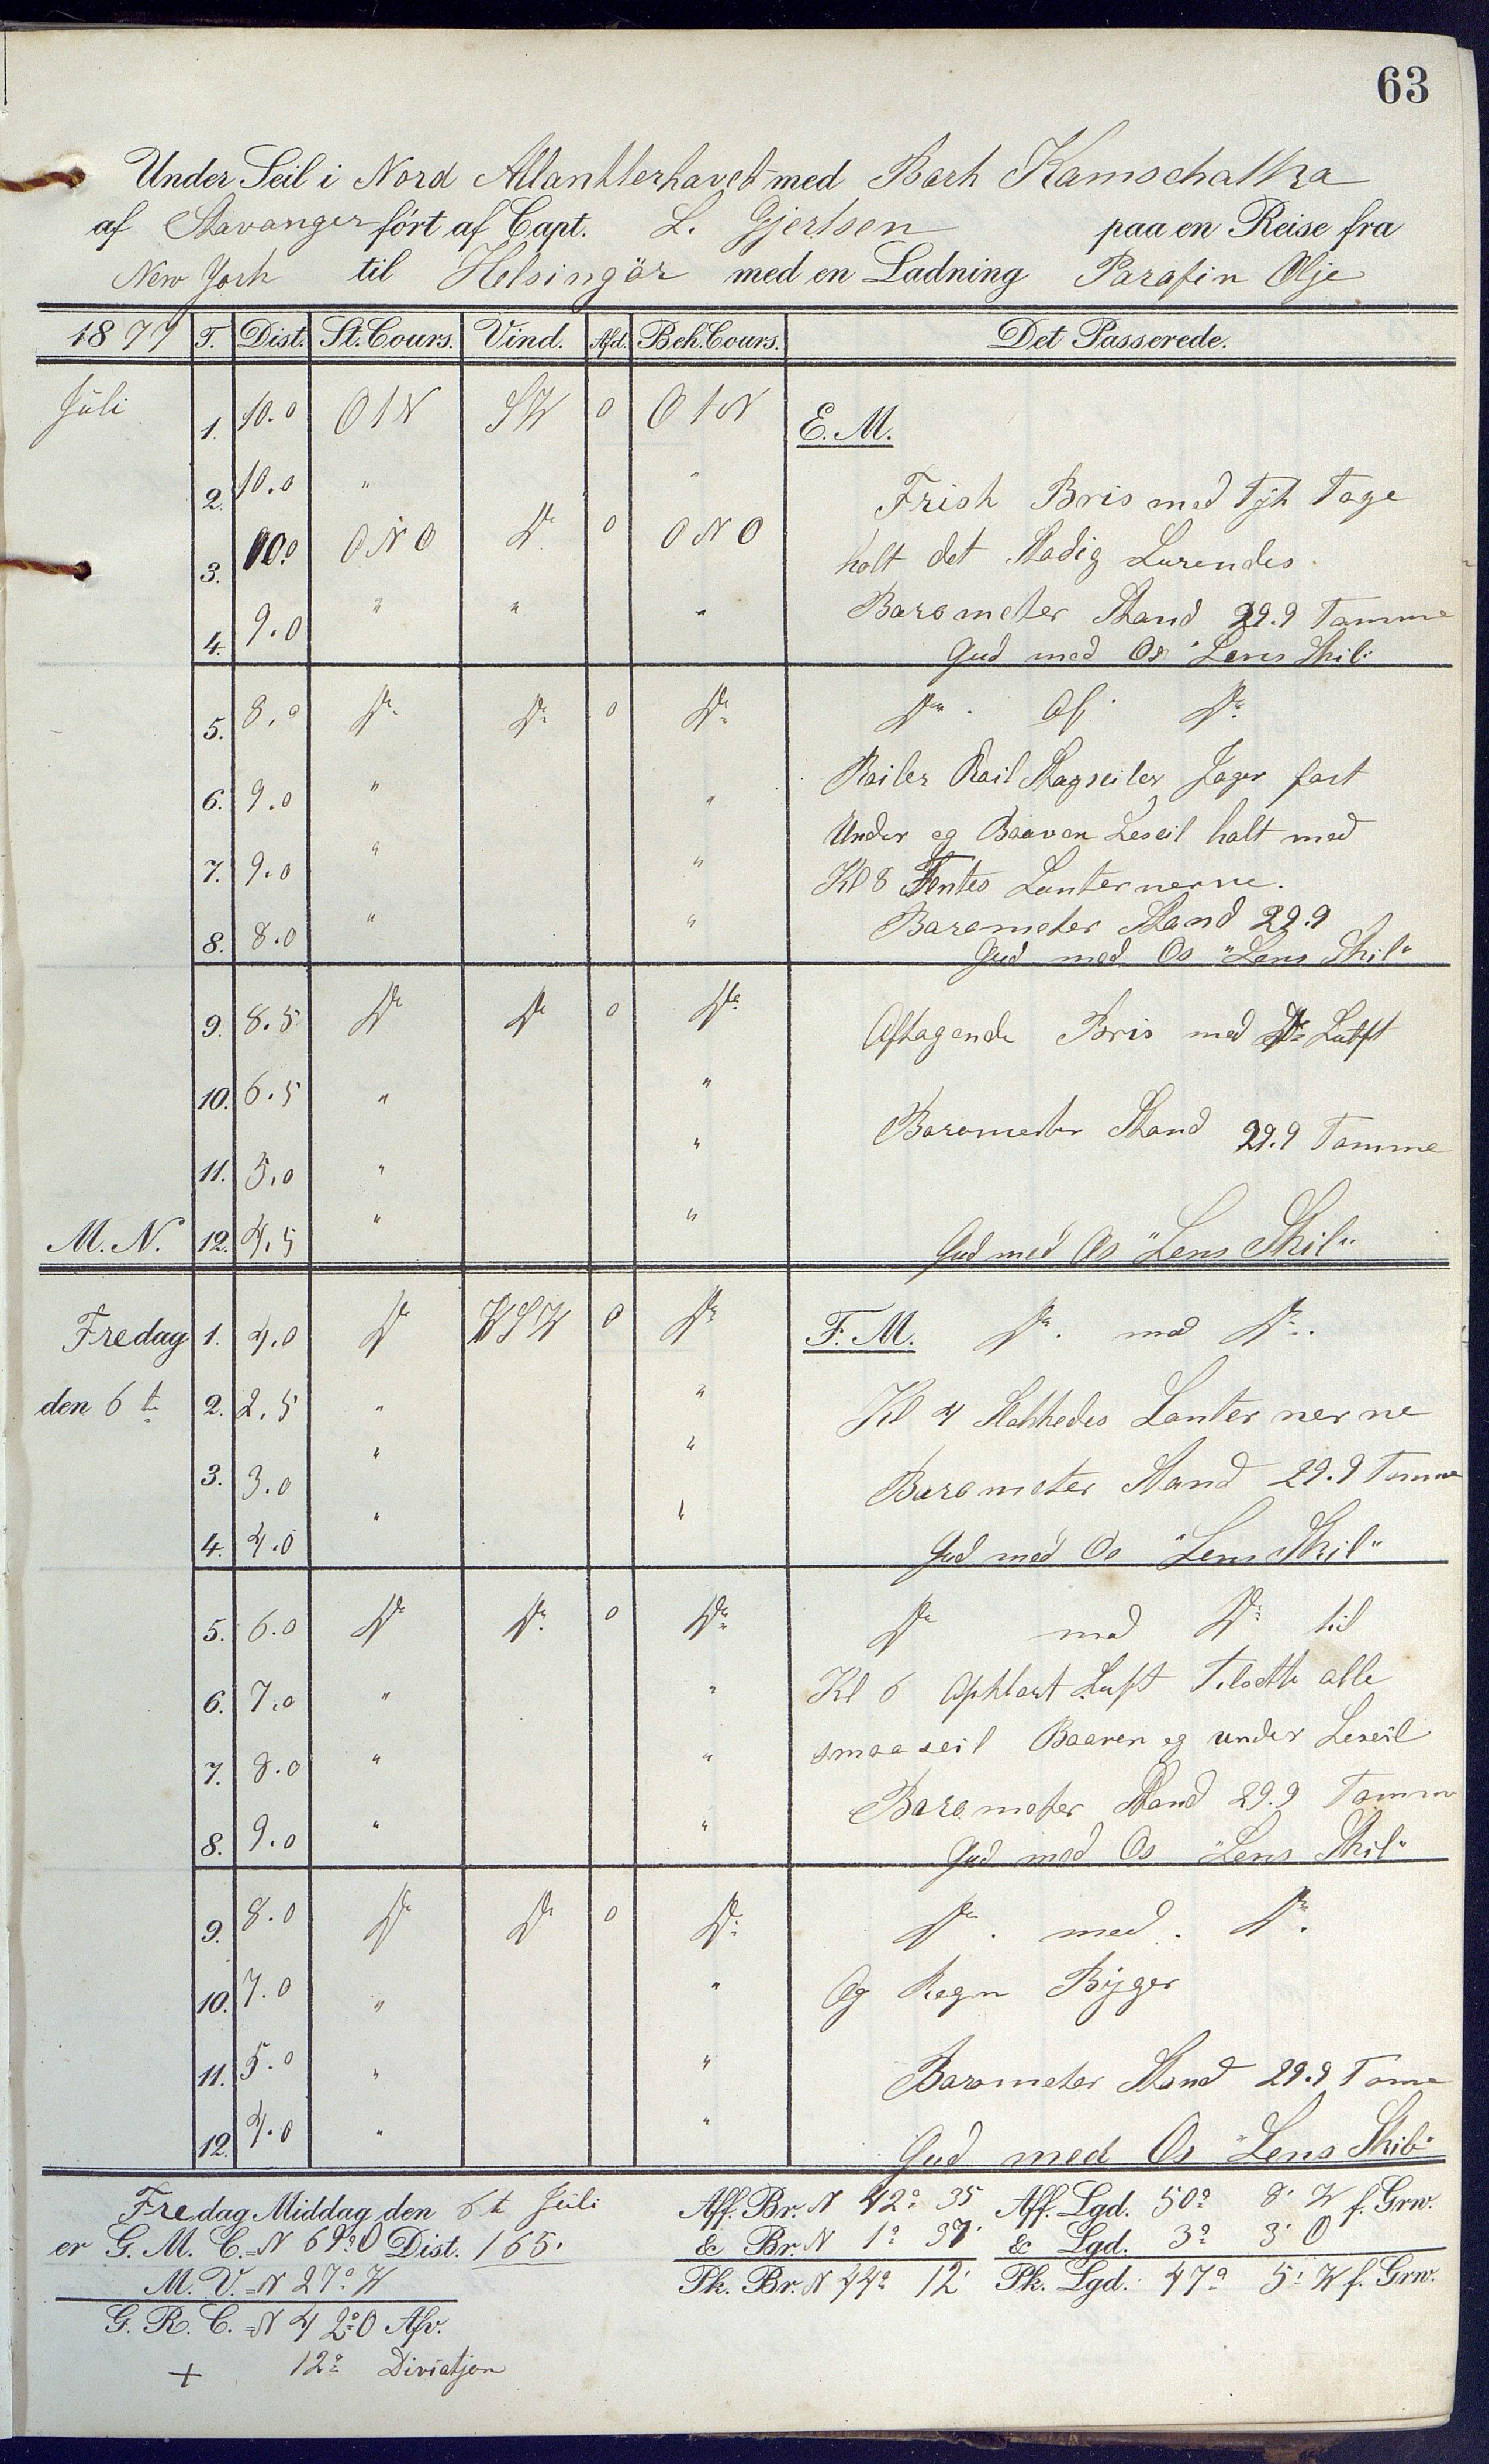 63
Under Seil i Nord Atlantterhavet med Bark Kamschatka
af Stavanger ført af Capt. L. Gjertsen paa en Reise fra
New York til Helsingör med en Ladning Parafin Olje
1877 T. Dist. St. Cours. Vind. Afd. Beh. Cours. Det Passerede.
Juli 1. 10.0 O t N SW 0 O t N E. M.
2. 10.0 " " Frisk Bris med Tyk Tage
3. 10.0 ONO Do 0 ONO holt det Stadig Lurendes.
4. 9.0 " " " Barometer Stand 29.9 Tomme
Gud med Os "Lens Skib"
5. 8.0 Do Do 0 Do Do. Af. Do
6. 9.0 " " Roiler Roil Stagseiler Jager fast
7. 9.0 " " Under og Baaven Leseil halt med
Kl 8 Tentes Lanternerne.
8. 8.0 " " Barometer Stand 29.9
Gud med Os "Lens Skib"
9. 8.5 Do Do 0 Do Aftagende Bris med Do Luft
10. 6.5 " "
11. 5.0 " " Barometer Stand 29.9 Tomme
M. N. 12. 4.5 " " Gud med Os "Lens Skib"
Fredag 1. 4.0 Do WSW 0 Do F. M. Do. med Do.
den 6te 2. 2.5 " " Kl 4 Slukkedes Lanternerne
3. 3.0 " " Barometer Stand 29.9 Tomme
4. 4.0 " " Gud med Os "Lens Skib"
5. 6.0 Do Do 0 Do Do med Do til
6. 7.0 " " Kl 6 Opklart Luft Tilsatte alle
7. 8.0 " " smaaseil Baaven og under Leseil
8. 9.0 " " Barometer Stand 29.9 Tomme
Gud med Os "Lens Skib"
9. 8.0 Do Do 0 Do Do. med. Do.
10. 7.0 " " Og Regn Byger
11. 5.0 " " Barometer Stand 29.9 Tome
12. 4.0 " " Gud med Os "Lens Skib"
Fredag Middag den 6te Juli Aff. Br. N 42° 35 Aff. Lgd. 50° 8' W f. Grw.
er G. M. C. = N 69° O Dist. 165' & Br. N 1° 37' & Lgd. 3° 3' O
M. V. = N 27° W Pk. Br. N 44° 12' Pk. Lgd. 47° 5' W f. Grw.
G. R. C. = N 42° O Afv.
+ 12° Diviatjon